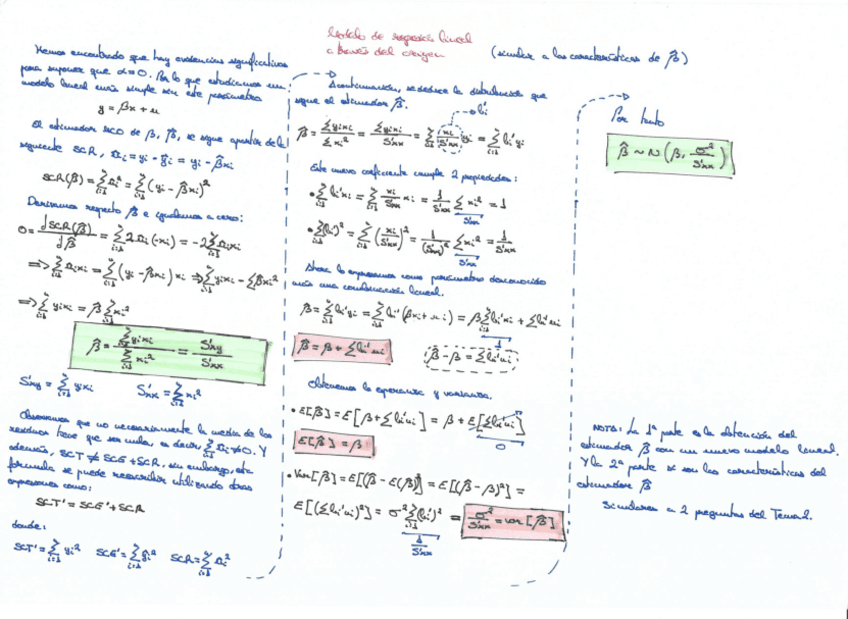 Modelo de regresión lineal
a través del origen
(similar a las características de β̂)
Hemos encontrado que hay evidencias significativas
para suponer que α=0. Por lo que estudiamos un
modelo lineal simple sin este parámetro
y = βx + u
El estimador MCO de β, β̂, se sigue a partir de la
siguiente SCR, ûi = yi - ŷi = yi - β̂xi
SCR(β̂) = Σûi² = Σ(yi - β̂xi)²
Derivamos respecto β̂ e igualamos a cero:
0 = dSCR(β̂)/dβ̂ = Σ2ûi(-xi) = -2Σûixi
=> Σûixi = Σ(yi - β̂xi)xi => Σyixi - Σβ̂xi²
=> Σyixi = β̂Σxi²
β̂ = Σyixi / Σxi² = S'xy / S'xx
S'xy = Σyixi S'xx = Σxi²
Observamos que no necesariamente la media de los
residuos tiene que ser nula, es decir, Σûi≠0. Y
además, SCT ≠ SCE + SCR, sin embargo, esta
formula se puede reescribir utilizando otras
expresiones como:
SCT' = SCE' + SCR
donde:
SCT' = Σyi² SCE' = Σŷi² SCR = Σûi²
A continuación, se deduce la distribución que
sigue el estimador β̂.
β̂ = Σyixi / Σxi² = Σyixi / S'xx = Σ(xi/S'xx)yi = Σli'yi
li'
Este nuevo coeficiente cumple 2 propiedades:
• Σli'xi = Σ(xi/S'xx)xi = 1/S'xx Σxi² = 1
S'xx
• Σ(li')² = Σ(xi/S'xx)² = 1/(S'xx)² Σxi² = 1/S'xx
S'xx
Ahora lo expresamos como parámetro desconocido
más una combinación lineal.
β̂ = Σli'yi = Σli'(βxi + ui) = βΣli'xi + Σli'ui
1
β̂ = β + Σli'ui
β̂ - β = Σli'ui
Obtenemos la esperanza y varianza.
• E[β̂] = E[β + Σli'ui] = β + E[Σli'ui]
0
E[β̂] = β
• Var[β̂] = E[(β̂ - E(β̂))²] = E[(β̂ - β)²] =
E[(Σli'ui)²] = σ²Σ(li')² = σ²/S'xx = var[β̂]
1/S'xx
Por tanto
β̂ ~ N(β, σ²/S'xx)
NOTA: La 1ª parte es la obtención del
estimador β̂ con un nuevo modelo lineal.
Y la 2ª parte si son las características del
estimador β̂
Similares a 2 preguntas del Tema 2.